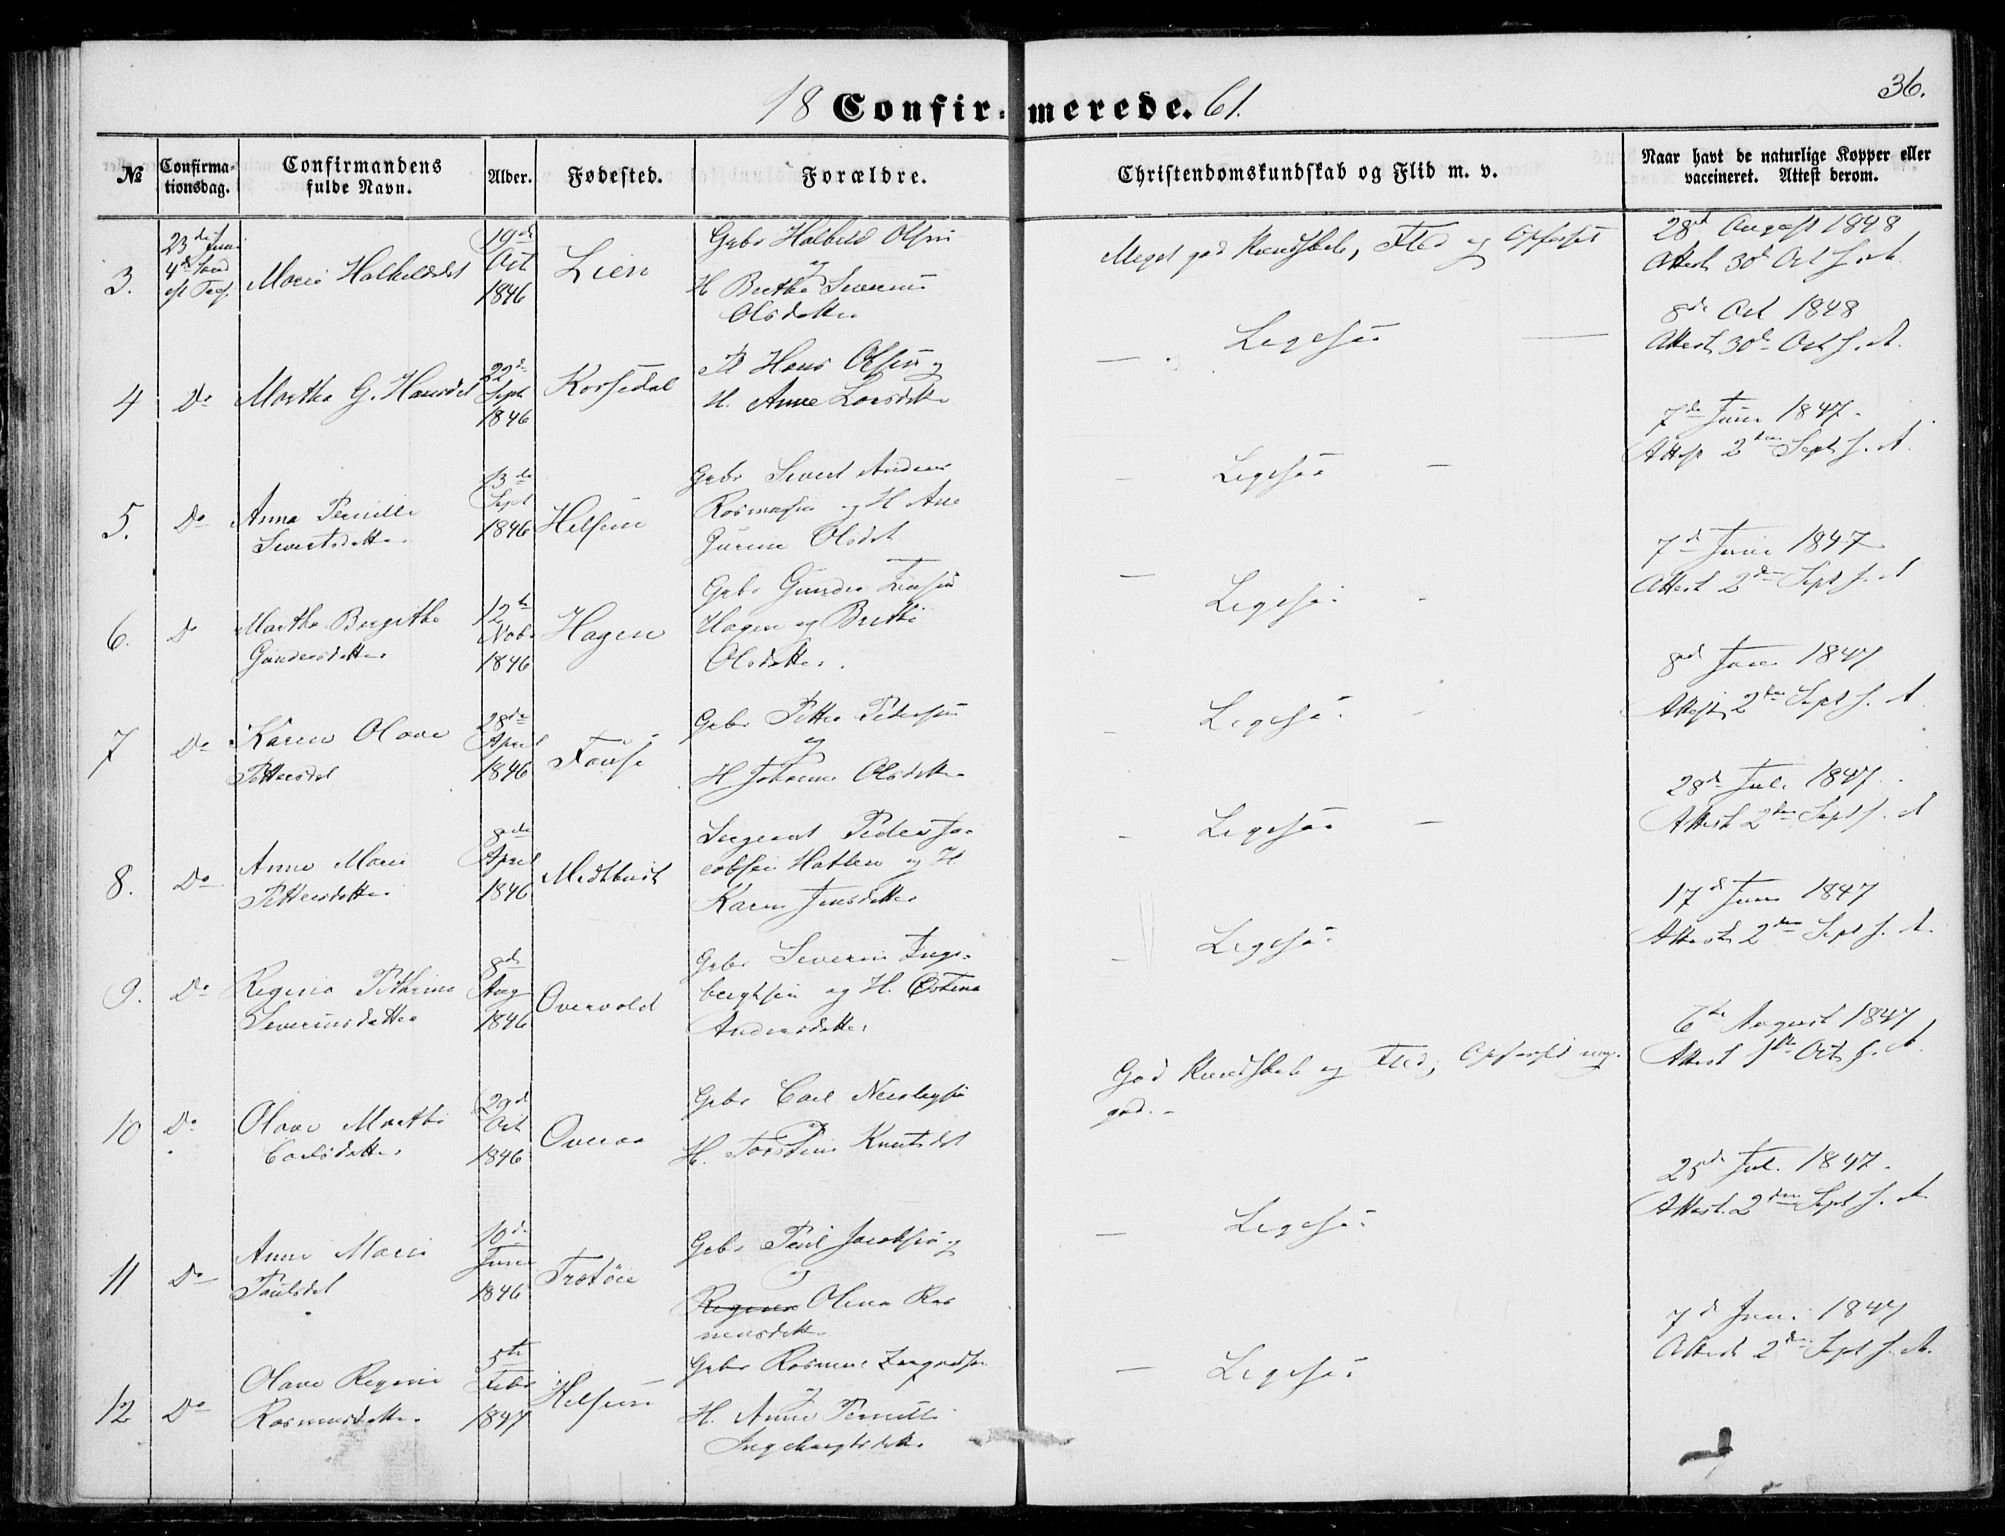 36.
18 Confir- merede. 61.
№
Confirma-
tionsdag.
Confirmandens
fulde Navn.
Alder.
Fødested.
Forældre.
Christendomskundskab og Flid m. v.
Naar havt de naturlige Kopper eller
vaccineret. Attest derom.
3.
23de Juni
4de Sønd
ef Tref.
19de
Oct
1846
Lien
Gbr
Olsen
og
H Berthe
Olsdatter
Meget god Kundskab, Flid og Opførsel
28de August 1848
Attest 30de Oct s. A.
4
Do
Martha G. Hansdt
22de
Sept
1846
Korsedal
Hans Olsen og
H. Anne Larsdatter
— Ligesaa —
8de Oct 1848
Attest 30de Oct s. A.
5.
Do
Anna Pernille
Sivertsdatter
13de
Sept
1846
Helsem
Gbr Sivert Andreas
Rasmussen og H Ane
Gurine Olsdt
— Ligesaa —
7de Juni 1847.
Attest 2den Sept s. A.
6.
Do
Martha Bergitha
Gundersdatter
12te
Nobr
1846
Hagen
Gbr Gunder
Hagen og Berthe
Olsdatter.
— Ligesaa
7de Juni 1847
Attest 2den Sept s. A
7
Do
Karen Olave
Pettersdt
28de
April
1846
Fause
Gbr Petter Pedersen
og
H Johanne Olsdatter
— Ligesaa
8de Juni 1847
Attest 2den Sept s. A
8.
Do
Anne Marie
Pettersdatter
8de
April
1846
Midtbust
Sergeant Peder Ja-
cobsen Hatlen og H.
Karen Jensdatter
— Ligesaa —
28de Jul. 1847.
Attest 2den Sept s. A
9.
Do
Regine Petrine
Severinsdatter
8de
Aug
1846
Overvold
Gbr Severin Inge-
brigtsen og H.
Andersdatter
— Ligesaa
17de Juni 1847
Attest 2den Sept s. A.
10
Do
Olave Marthe
Carlsdatter
29de
Oct
1846
Overaa
Gbr Carl Nicolaysen
og
H. Knutsdt
God Kundskab og Flid, Opførsel meg.
god. -
6te August 1847
Attest 1ste Oct s. A.
11
Do
Anne Marie
Paulsdt
10de
Juni
1846
Gbr Paul Jacobsen og
og
Olena Ras
musdatter
— Ligesaa
25de Jul. 1847.
Attest. 2den Sept s. A.
12
Do
Olave Regine
Rasmusdatter
5te
Febr
1847
Helsem
Gbr Rasmus
og
H. Anne Pernille
Ingebrigtsdatter
— Ligesaa
7de Juni 1847
Attest 2den Sept s. A.